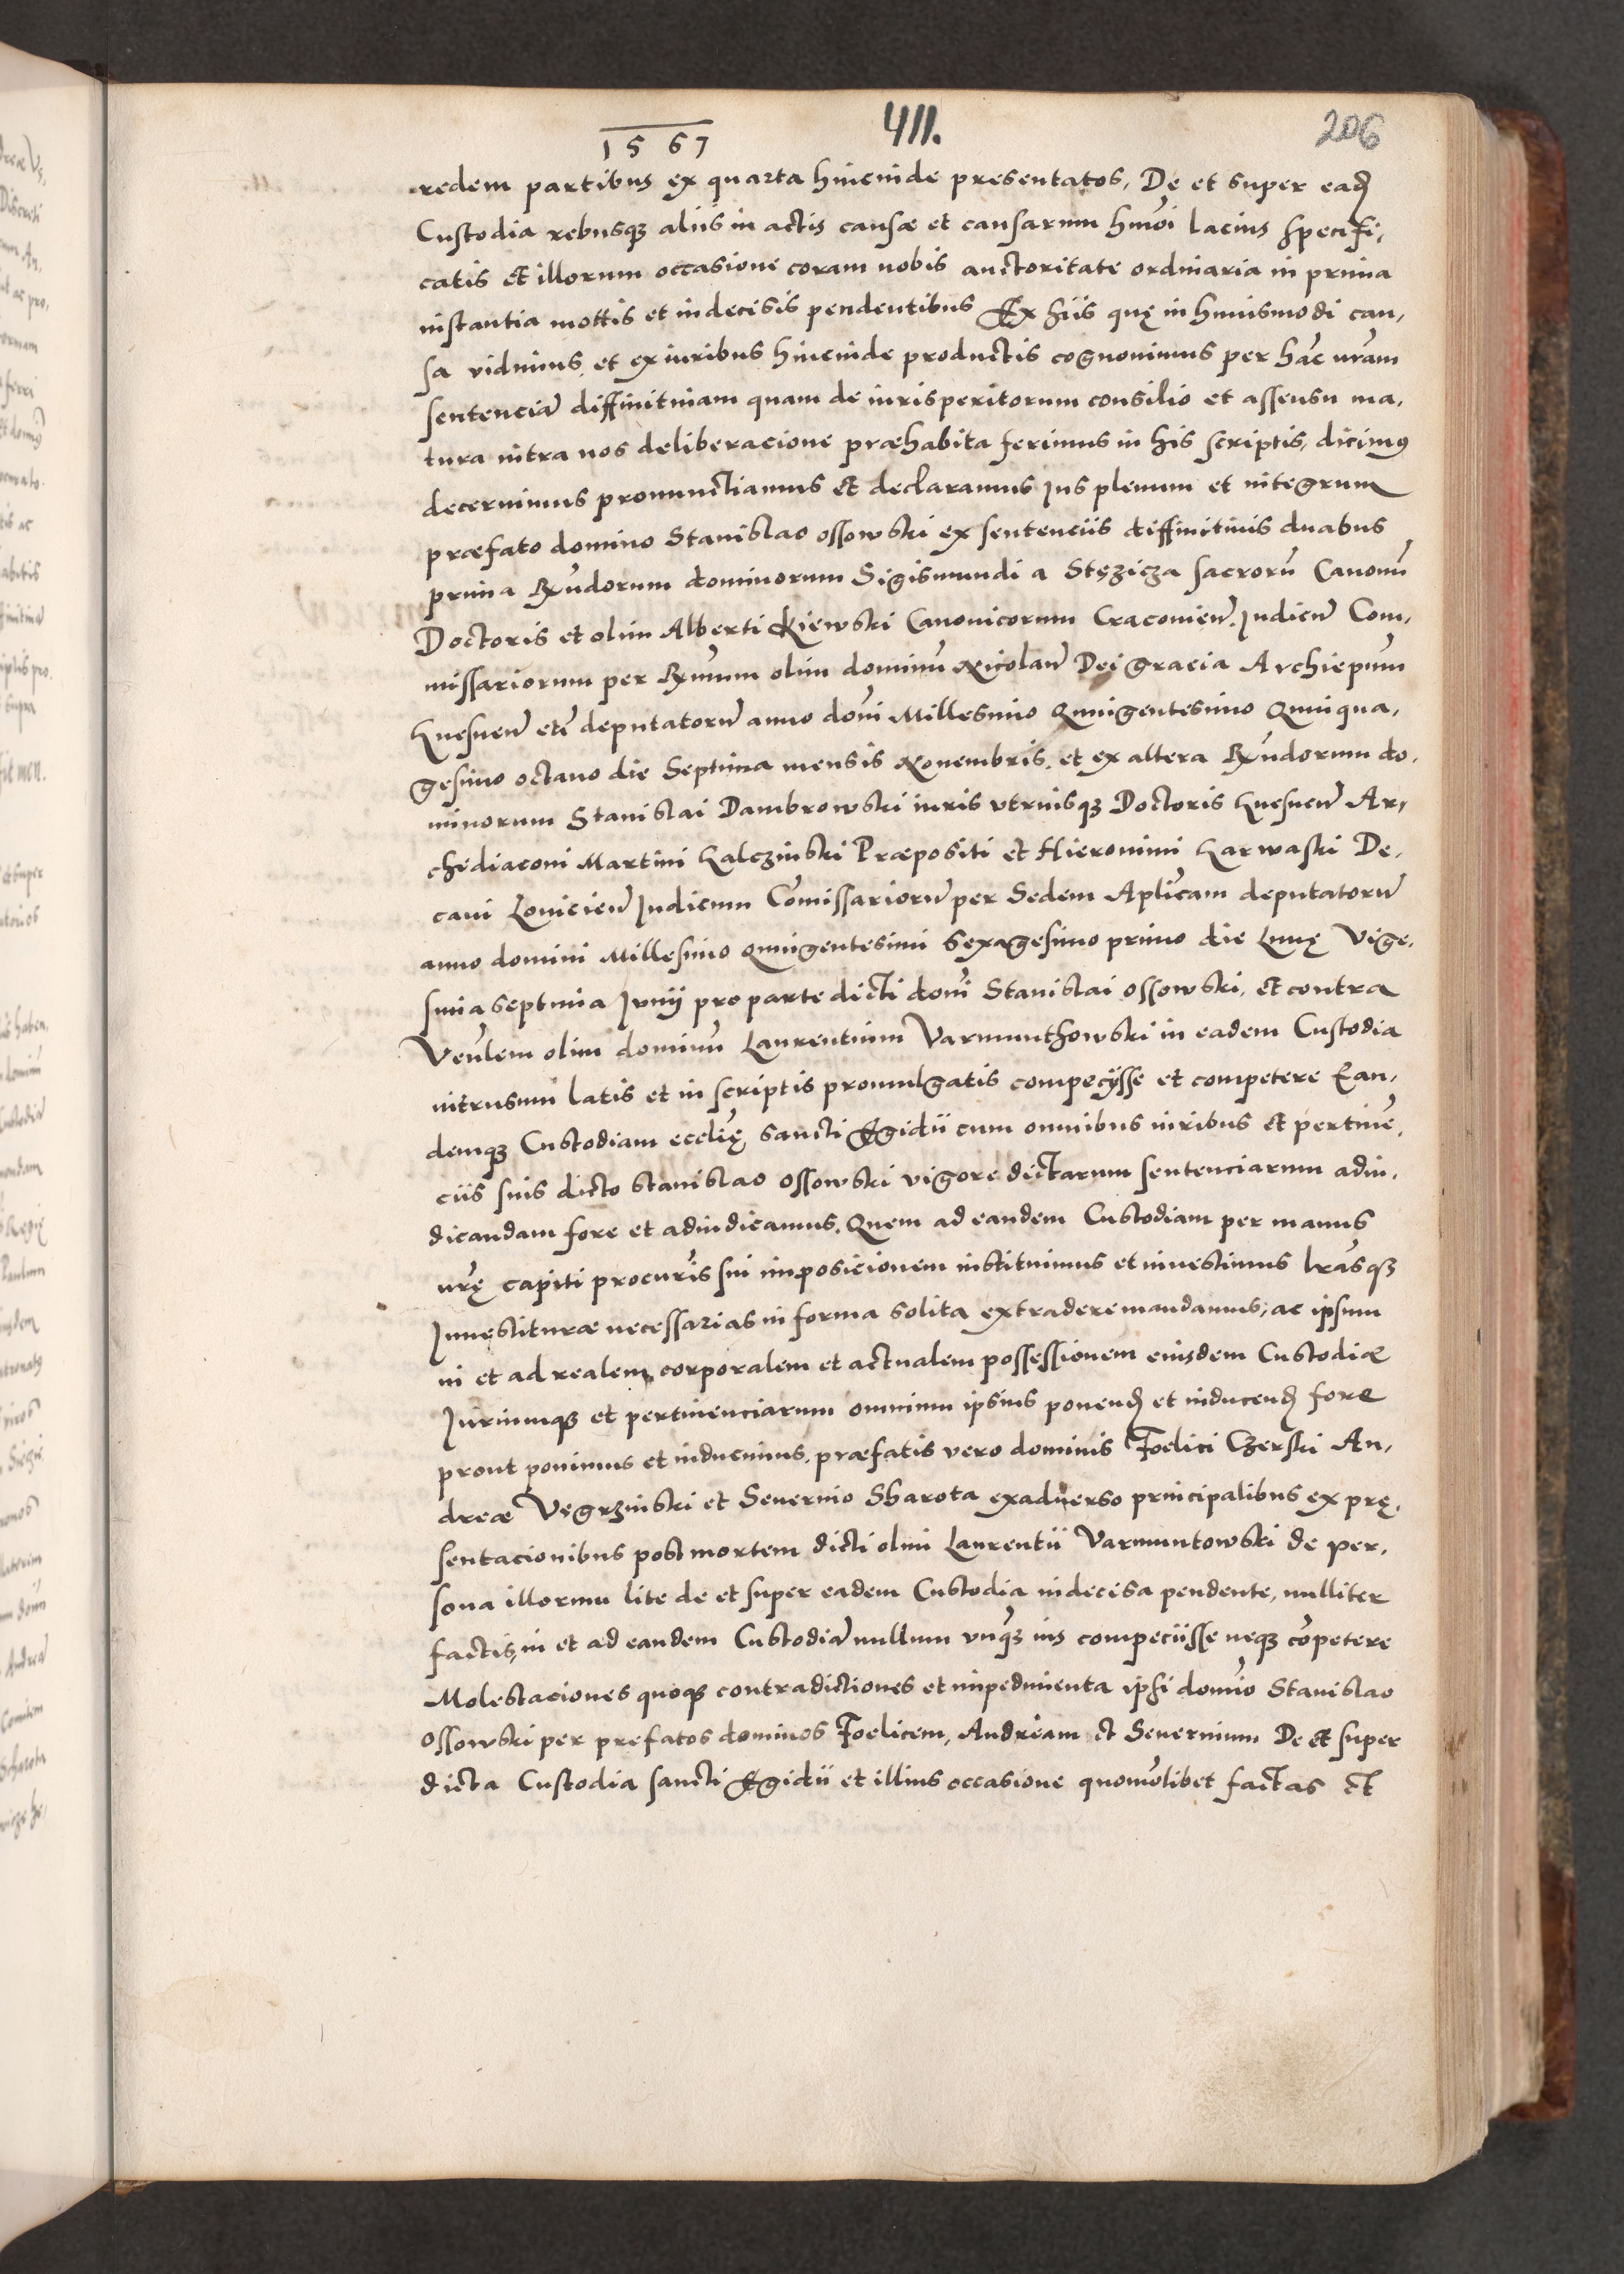 1567
411.
206
redem partibus ex quarta hincinde presentatos, De et super ead
Custodia rebusq aliis in actis causæ et causarum hmōi lacius specifi,
catis et illorum occasione coram nobis auctoritate ordinaria in prima
instantia mottis et indecisis pendentibus Ex hiis quę in huiusmodi cau,
sa vidimus, et ex iuribus hincinde productis cognouimus per hāc nrām
sentenciā diffinitiuam quam de iurisperitorum consilio et assensu ma,
tura intra nos deliberacione præhabita ferimus in his scriptis, dicimus
decernimus pronunctiamus et declaramus Jus plenum et integrum
præfato domino Stanislao Ossowski ex sentenciis diffinitiuis duabus
prima Rūdorum dominorum Sigismundi a Stęzicza sacrorū Canonū
Doctoris et olim Alberti Kiewski Canonicorum Cracouien̄ Judicū Com,
missariorum per Rm̄um olim dominū Nicolaū Dei gracia Archiepūm
Gnesnen̄ etc deputatorū anno dom̄i Millesimo Quingentesimo Quinqua,
gesimo octauo die Septima mensis Nouembris, et ex altera Rūdorum do,
minorum Stanislai Dambrowski iuris vtriusq Doctoris Gnesnen̄ Ar,
chidiaconi Martini Galczinski Præpositi et Hieronimi Garwaski De,
cani Louicien̄ Judicum Cōmissariorū per Sedem Aplicam deputatorū
anno domini Millesimo quingentesimi sexagesimo primo die Lunę Vige,
sima septima Junij pro parte dicti dom̄i Stanislai Ossowski, et contra
Veūlem olim dominū Laurentium Varmunthowski in eadem Custodia
intrusum latis et in scriptis promulgatis compecysse et competere Ean,
demq Custodiam ecclię sancti Egidii cum omnibus iuribus et pertinē,
ciis suis dicto Stanislao Ossowski vigore dictarum sentenciarum adiu,
dicandam fore et adiudicamus, Quem ad eandem Custodiam per manus
nrę capiti procuris sui imposicionem instituimus et inuestimus lrāsq
Inuestituræ necessarias in forma solita extradere mandamus, ac ipsum
in et ad realem, corporalem et actualem possessionem eiusdem Custodiæ
Juriumq et pertinenciarum omnium ipsius ponend et inducend fore
prout ponimus et inducimus, præfatis vero dominis Foelici Czerski An,
dreæ Vęgrzinski et Seuerino Sbarota exaduerso principalibus ex prę,
sentacionibus post mortem dicti olim Laurentii Varmuntowski de per,
sona illorum lite de et super eadem Custodia indecisa pendente, nulliter
factis, in et ad eandem Custodiā nullum vnq̄ ius compeciisse neq cōpetere
Molestaciones quoq contradictiones et impedimenta ipsi domīo Stanislao
Ossowski per prefatos dominos Foelicem, Andream et Seuerinum De et super
dicta Custodia sancti Egidii et illius occasione quomōlibet factas et